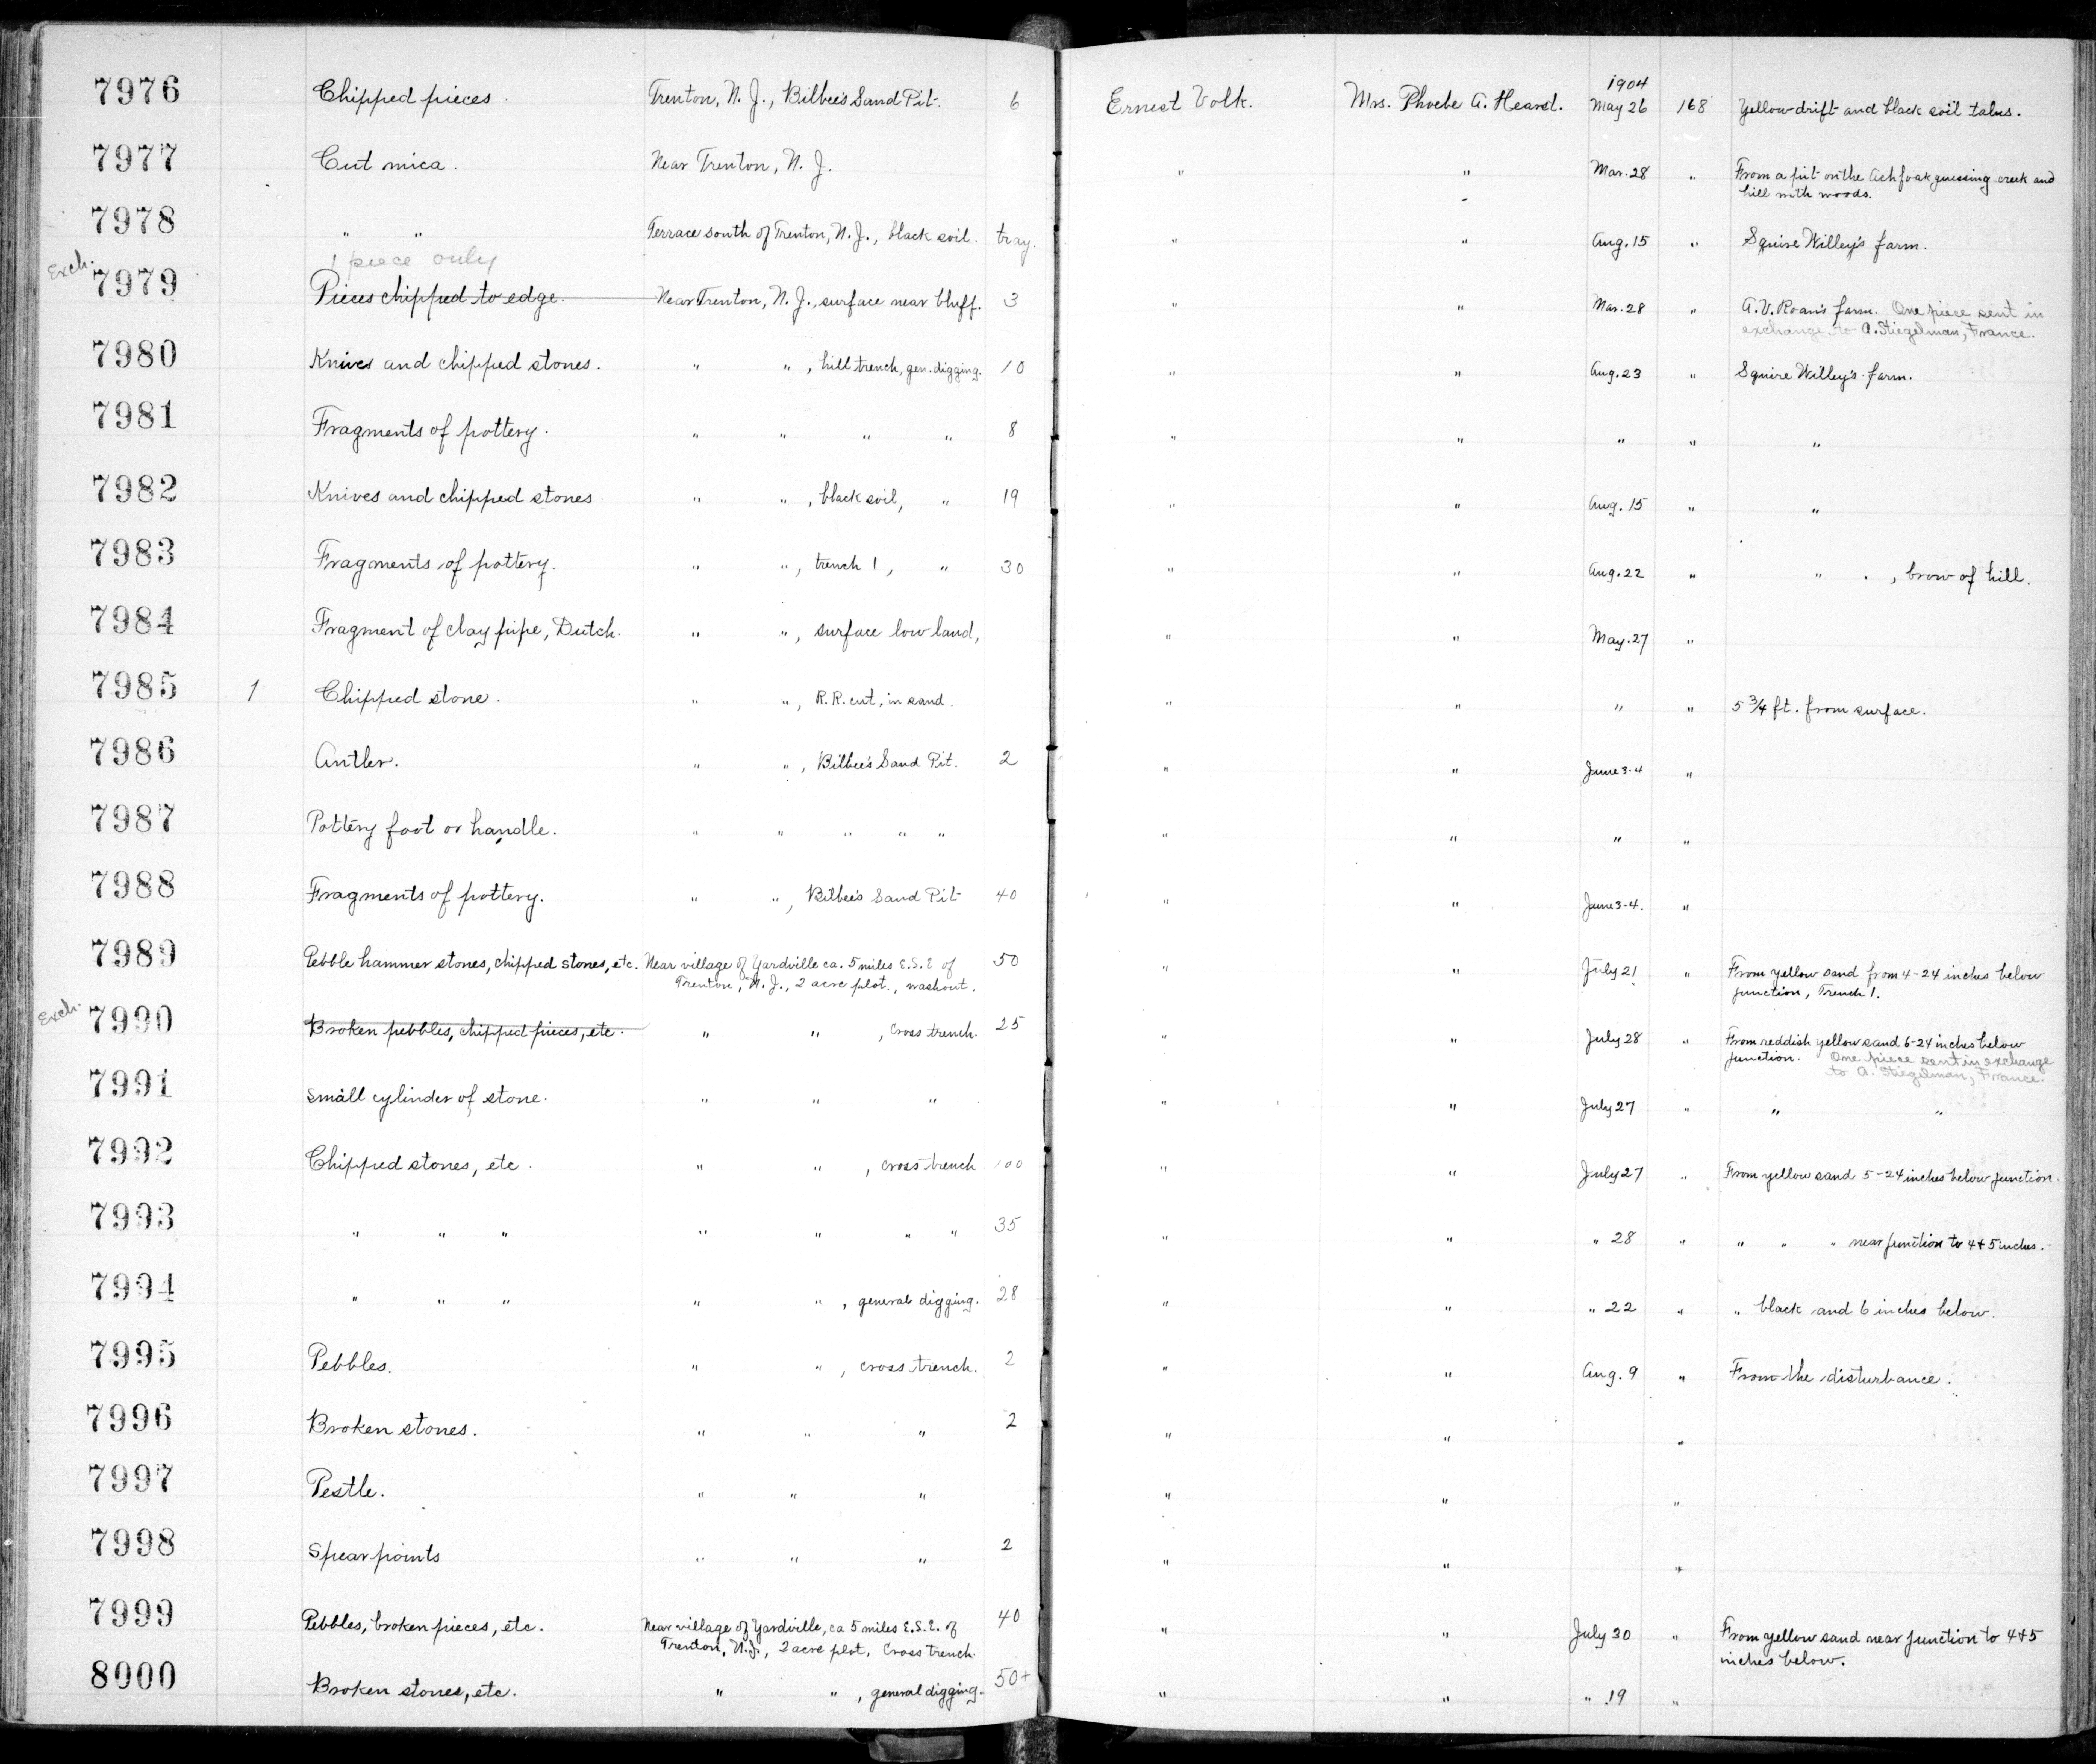 1904
7976 Chipped pieces. Trenton, N. J., Bilbee's Sand Pit. 6 Ernest Volk. Mrs. Phoebe A. Hearst. May 26 168 Yellow drift and black soil talus.
7977 Cut mica. Near Trenton, N. J. " " Mar. 28 " From a pit on the creek and
hill with woods.
7978 " " Terrace south of Trenton, N. J., black soil. tray. " " Aug. 15 " Squire Willey's farm.
1 piece only
Exch. 7979 Pieces chipped to edge. Near Trenton, N. J., surface near bluff. 3 " " Mar. 28 " A.V. Roan's farm. One piece sent in
exchange to A. Stiegelman, France.
7980 Knives and chipped stones. " ", hill trench, gen. digging. 10 " " Aug. 23 " Squire Willey's farm.
7981 Fragments of pottery. " " " " 8 " " " " "
7982 Knives and chipped stones " ", black soil, " 19 " " Aug. 15 " "
7983 Fragments of pottery. " ", trench 1, " 30 " " Aug. 22 " " , brow of hill.
7984 Fragment of clay pipe, Dutch. " ", surface low land, " " May. 27 "
7985 1 Chipped stone. " ", R.R. cut, in sand. " " " " 5 3/4 ft. from surface.
7986 Antler. " ", Bilbee's Sand Pit. 2 " " June 3-4 "
7987 Pottery foot or handle. " " " " " " " " "
7988 Fragments of pottery. " ", Bilbee's Sand Pit 40 " " June 3-4. "
7989 Pebble hammer stones, chipped stones, etc. Near village of Yardville ca. 5 miles E.S.E of 50 " " July 21 " From yellow sand from 4-24 inches below
Trenton, N. J., 2 acre plot., washout. junction, Trench 1.
Exch. 7990 Broken pebbles, chipped pieces, etc. " " , cross trench. 25 " " July 28 " From reddish yellow sand 6-24 inches below
junction. One piece sent in exchange
to A. Stiegelman, France.
7991 Small cylinder of stone. " " " " " July 27 " " "
7992 Chipped stones, etc. " " , cross trench 100 " " July 27 " From yellow sand 5-24 inches below junction.
7993 " " " " " " " 35 " " " 28 " " " " near junction to 4+5 inches.
7994 " " " " " , general digging. 28 " " " 22 " " black and 6 inches below.
7995 Pebbles. " " , cross trench. 2 " " Aug. 9 " From the disturbance.
7996 Broken stones. " " " 2 " " "
7997 Pestle. " " " " " "
7998 Spear points " " " 2 " " "
7999 Pebbles, broken pieces, etc. Near village of Yardville, ca 5 miles E.S.E. of 40 " " July 30 " From yellow sand near junction to 4+5
Trenton, N.J., 2 acre plot, Cross trench. inches below.
8000 Broken stones, etc. " " , general digging. 50+ " " " 19 "